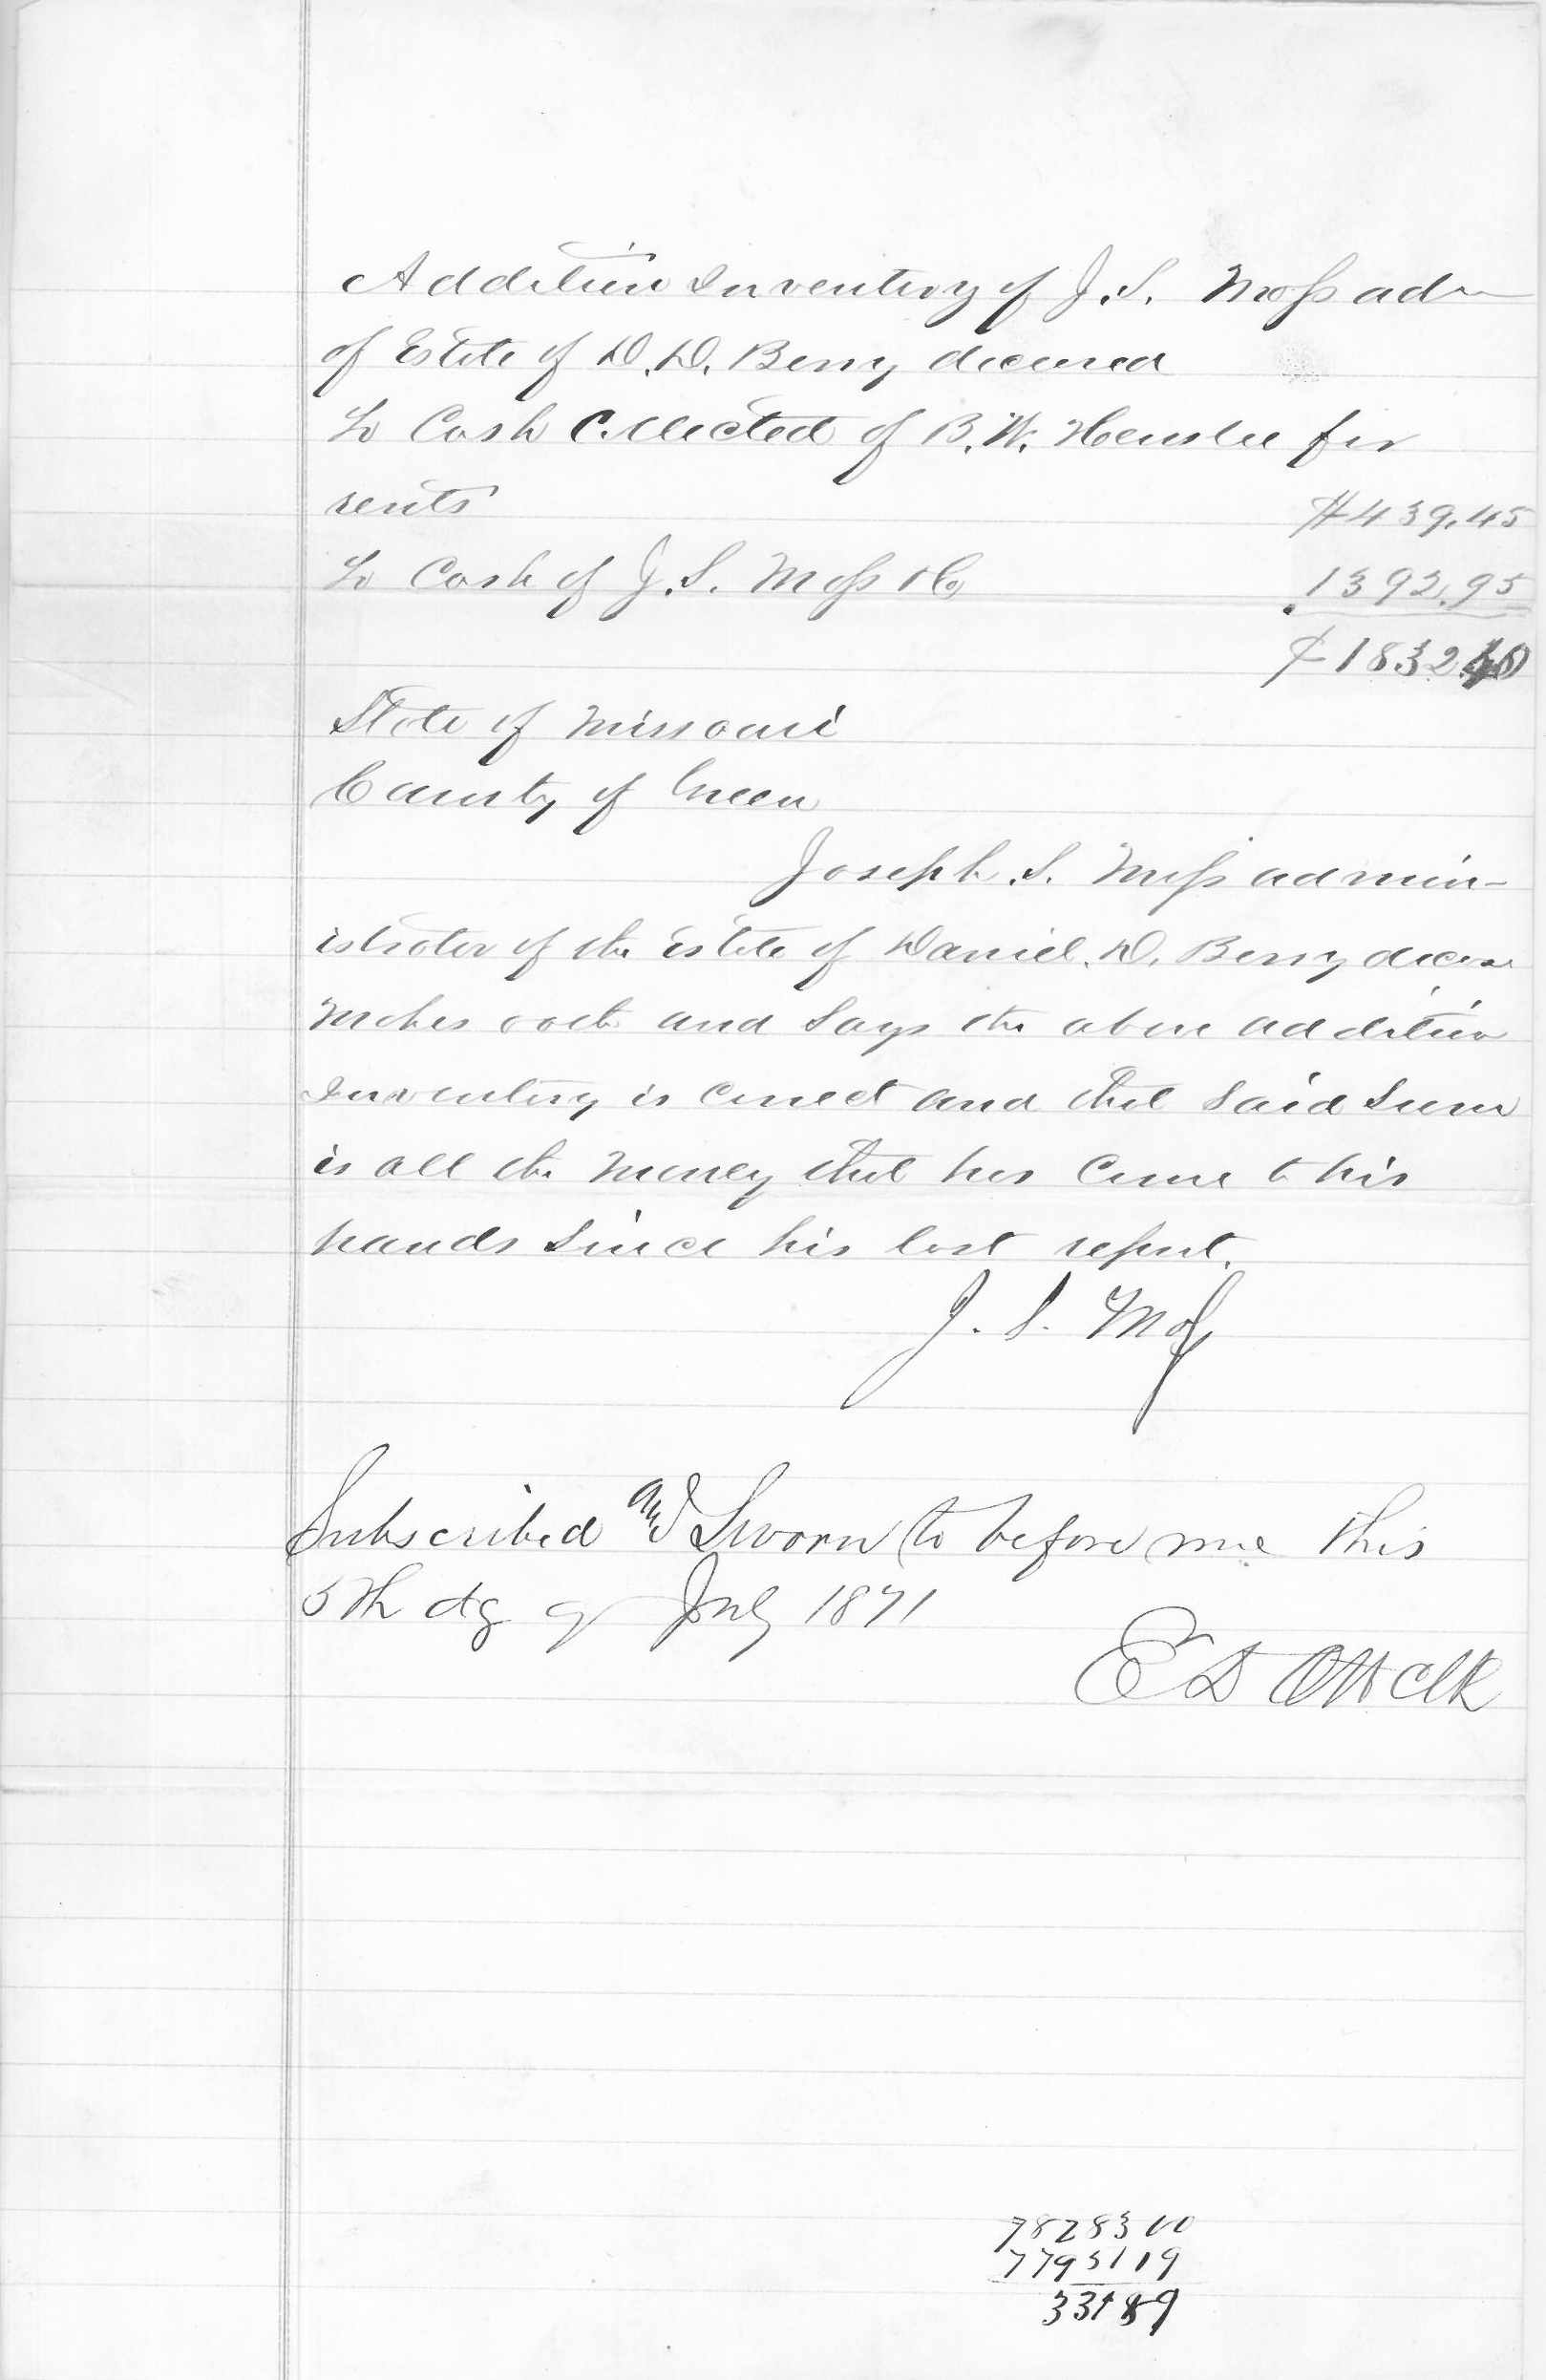 Addition Inventory of J. S. Moss adm
of Estate of D. D. Berry deceased
To Cash Collected of B. W. Henslee for
rents $439.45
To Cash of J. S. Moss & Co 1392.95
$1832.40
State of Missouri
County of Green
Joseph. S. Moss admin-
istrator of the estate of Daniel. D. Berry deceas
makes oath and says the above addition
Inventory is correct and that said sum
is all the money that has come to his
hands since his last report.
J. S. Moss
Subscribed and Sworn to before me this
5th dy of July 1871
E D Ott Clk
7828300
7795119
33189